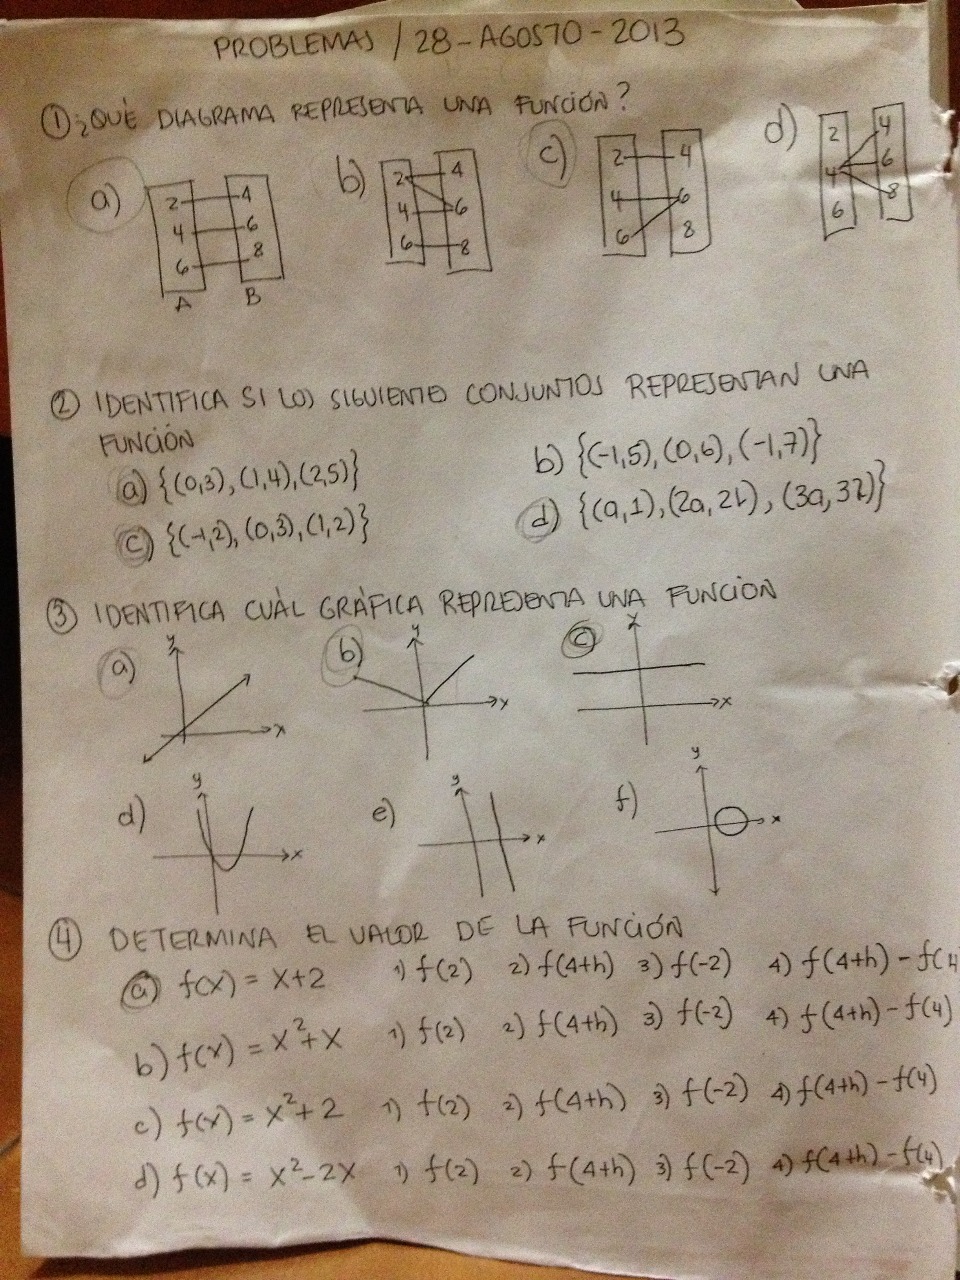 PROBLEMAS / 28-AGOSTO-2013
① ¿QUÉ DIAGRAMA REPRESENTA UNA FUNCIÓN?
a) b) c) d)
2 4
4 6
6 8
A B
2 4
4 6
6 8
2 4
4 6
6 8
2 4
4 6
6 8
② IDENTIFICA SI LOS SIGUIENTES CONJUNTOS REPRESENTAN UNA
FUNCIÓN
a) {(0,3), (1,4), (2,5)} b) {(-1,5), (0,6), (-1,7)}
c) {(-1,2), (0,3), (1,2)} d) {(a,1), (2a,2b), (3a,3b)}
③ IDENTIFICA CUÁL GRÁFICA REPRESENTA UNA FUNCIÓN
a) y x b) y x c) y x
d) y x e) y x f) y x
④ DETERMINA EL VALOR DE LA FUNCIÓN
a) f(x) = x+2 1) f(2) 2) f(4+h) 3) f(-2) 4) f(4+h) - f(4
b) f(x) = x²+x 1) f(2) 2) f(4+h) 3) f(-2) 4) f(4+h) - f(4)
c) f(x) = x²+2 1) f(2) 2) f(4+h) 3) f(-2) 4) f(4+h) - f(4)
d) f(x) = x²-2x 1) f(2) 2) f(4+h) 3) f(-2) 4) f(4+h) - f(4)